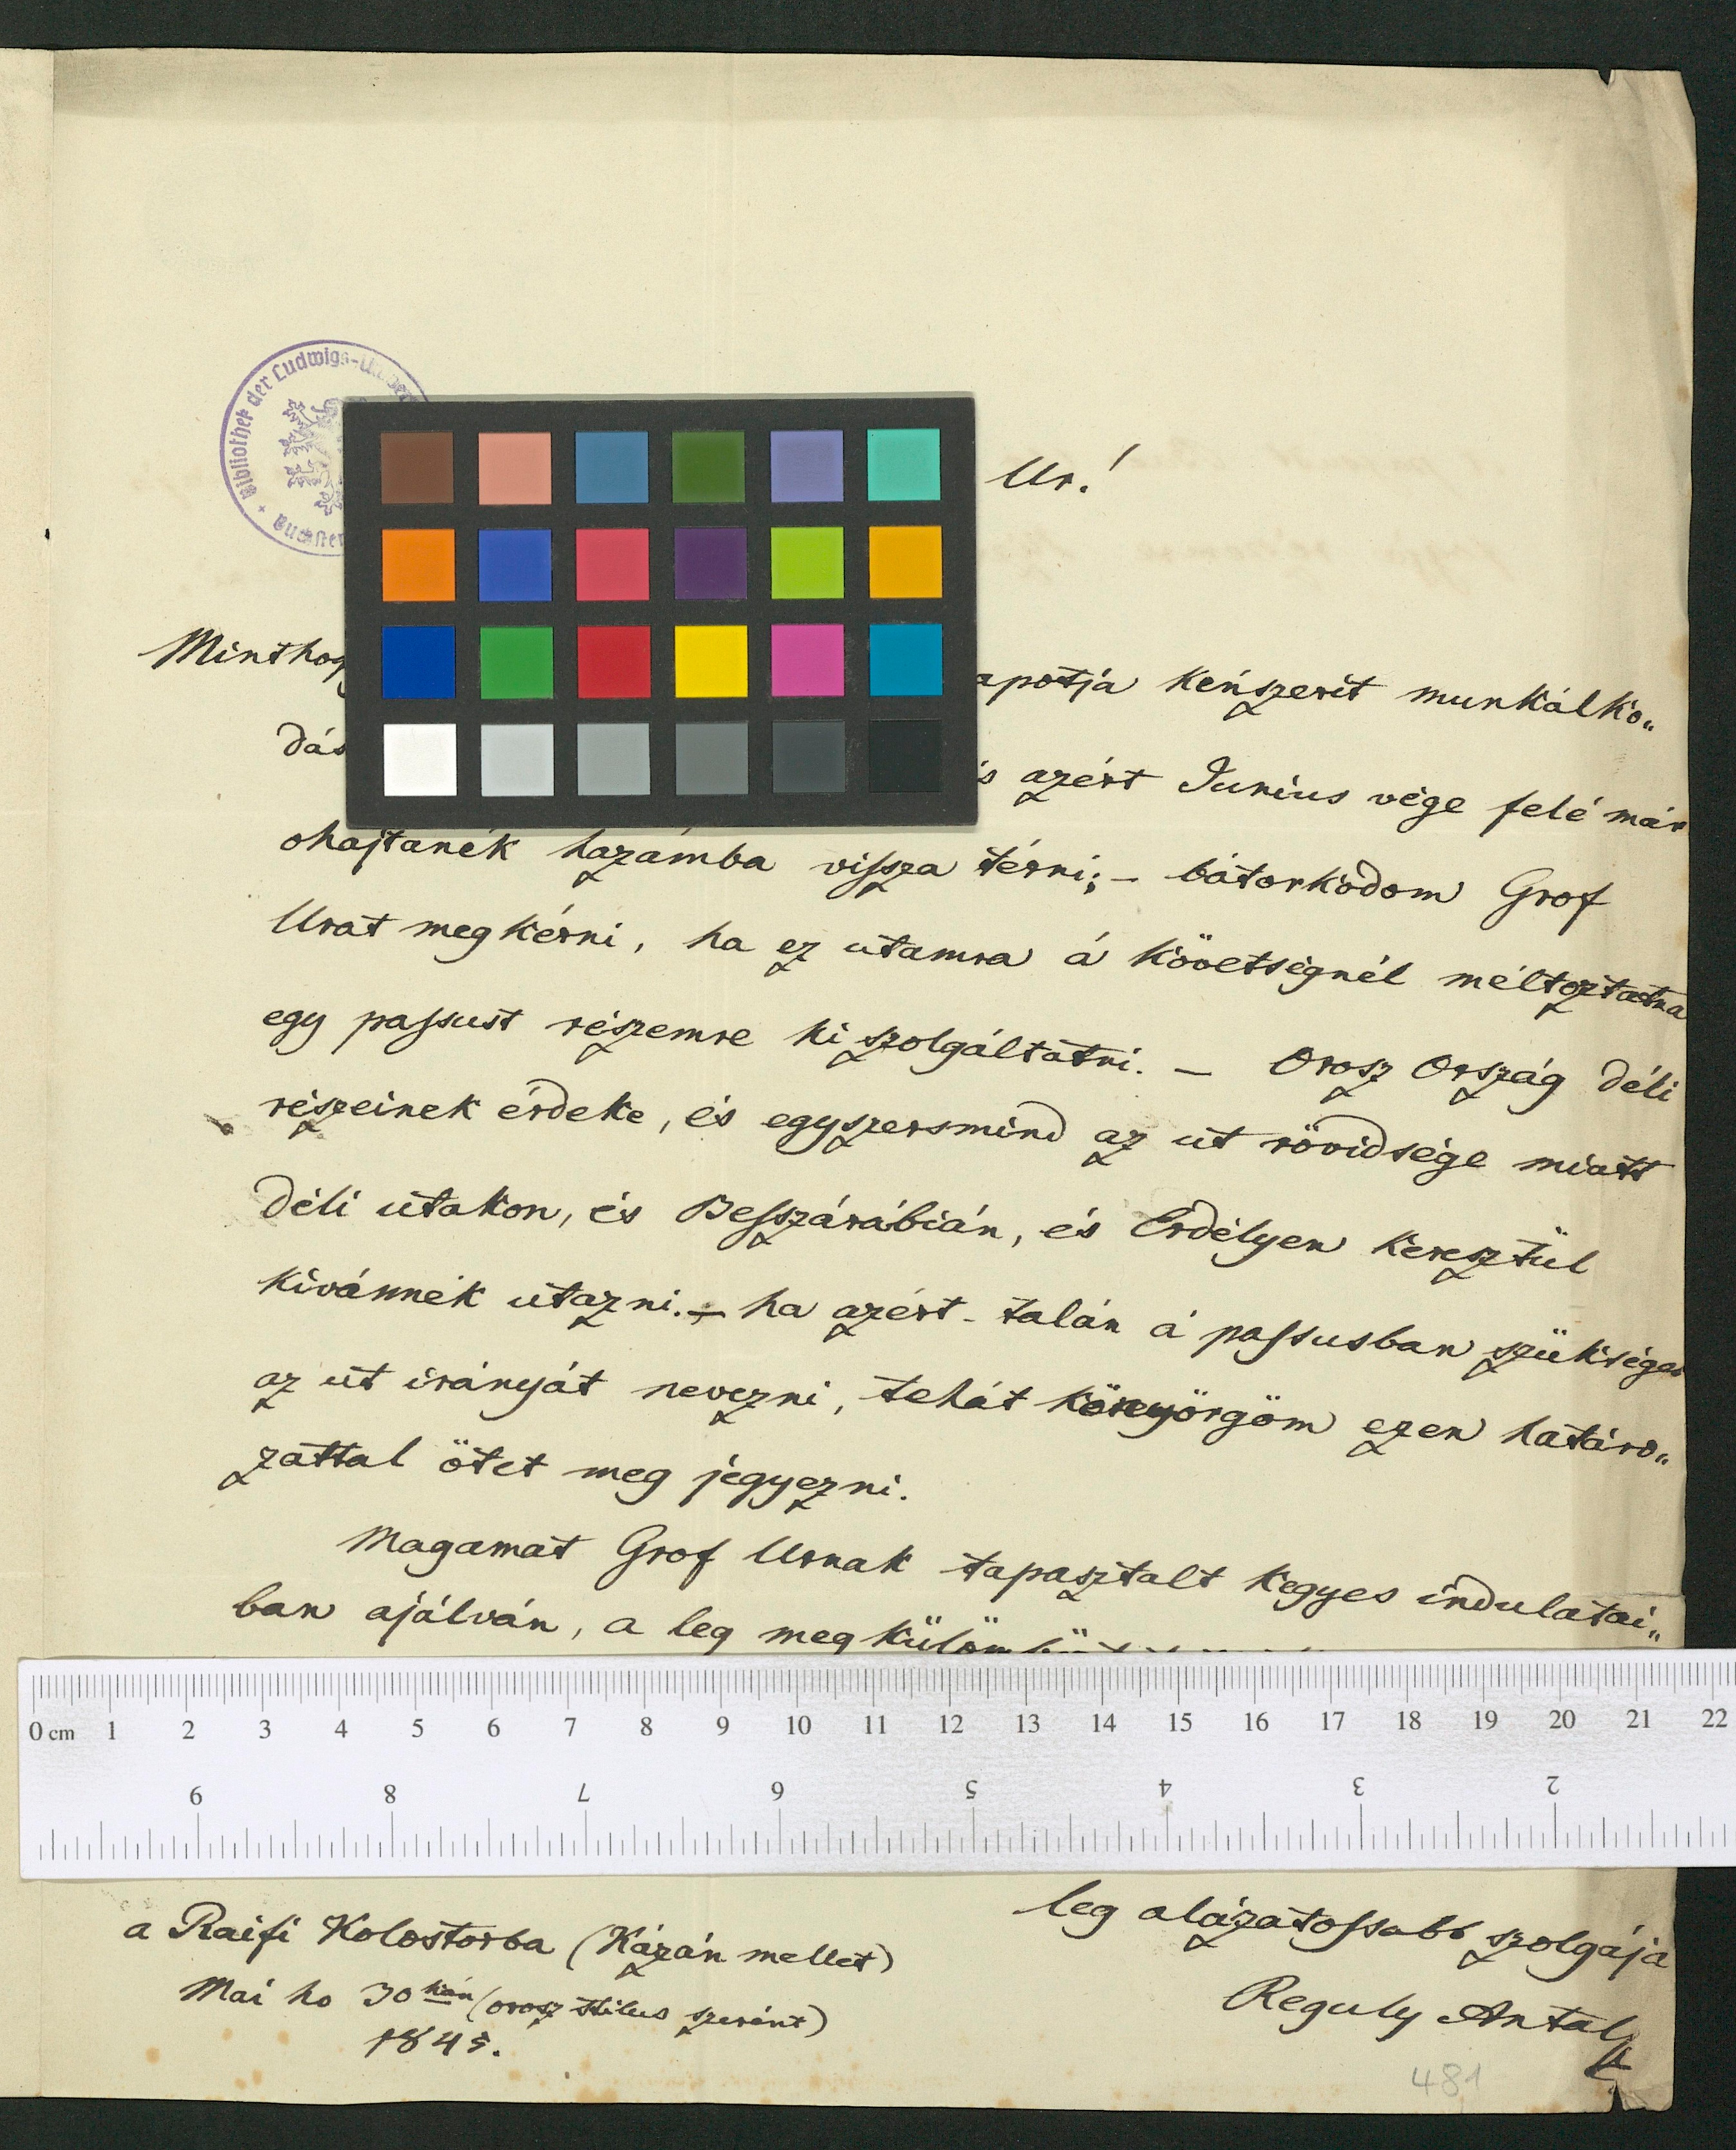 Bibliothek der Ludwigs-
Ur!
Minthog
apotja kénszerit munkálko„
dás
is azért Junius vége felé már
ohajtanék hazámba viſsza térni; – bátorkodom Grof
Urat meg kérni, ha ez utamra á követségnél méltoztatna
egy paſsust részemre ki szolgáltatni. – Orosz Ország déli
részeinek érdeke, és egyszersmind az ut rövidsége miatt
déli utakon, és Beſszárábián, és Erdélyen keresztül
kivánnék utazni. – ha azért – talán á paſsusban szükséges
az ut irányját nevezni, tehát könyörgöm ezen határo„
zattal ötet meg jegyezni.
Magamat Grof Urnak tapasztalt kegyes indulatai„
ban ajálván, a leg meg
0 cm 1 2 3 4 5 6 7 8 9 10 11 12 13 14 15 16 17 18 19 20 21 22
9 8 7 6 5 4 3 2
leg alázatoſsabb szolgája
Reguly Antal
a Raifi Kolostorba (Kázán mellet)
Mai ho 30 kán (orosz stilus szerént)
1845.
481